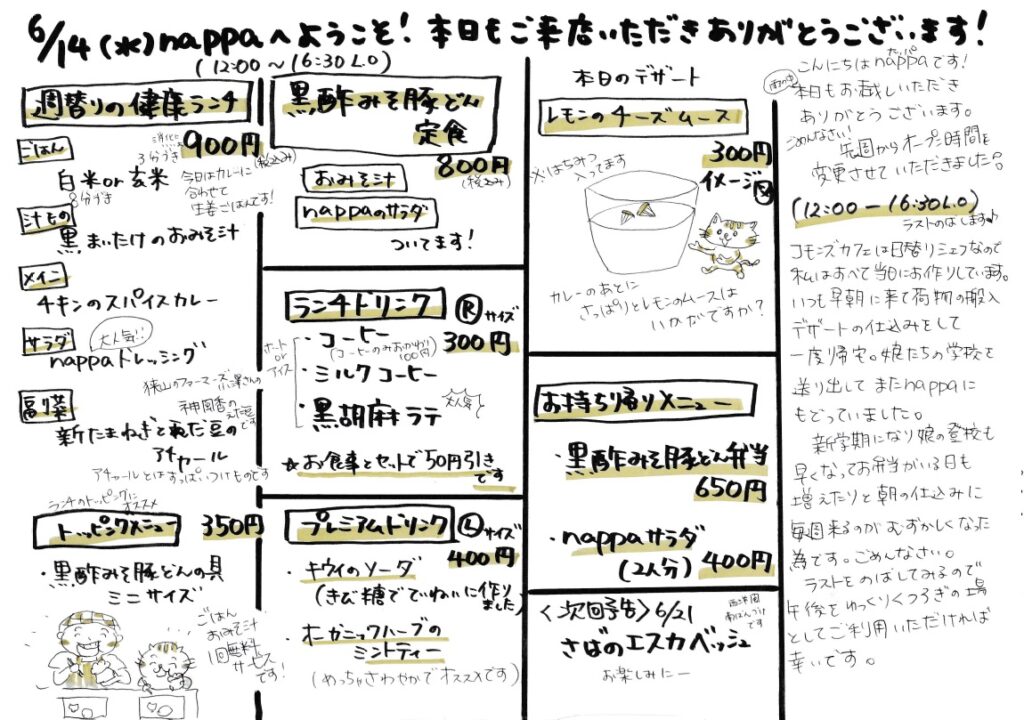 6/14(水)nappaへようこそ！本日もご来店いただきありがとうございます！
(12:00〜16:30 L.O)
週替りの健康ランチ
900円
(税込み)
ごはん
消化に
3分づき
白米or玄米
8分づき
今日はカレーに
合わせて
生姜ごはんです！
汁もの
黒まいたけのおみそ汁
メイン
チキンのスパイスカレー
サラダ
大人気!!
nappaドレッシング
副菜
新たまねぎと枝豆の
アチャール
アチャールとはすっぱいつけものです
ランチのトッピングに
オススメ
トッピングメニュー 350円
・黒酢みそ豚どんの具
ミニサイズ
ごはん
おみそ汁
1回無料
サービス
です！
黒酢みそ豚どん
定食
800円
(税込み)
おみそ汁
nappaのサラダ
ついてます！
ランチドリンク Rサイズ
300円
ホット
or
アイス
・コーヒー
(コーヒーのみおかわり
100円)
・ミルクコーヒー
・黒胡麻キラテ
大人気
☆お食事とセットで50円引き
です
プレミアムドリンク Lサイズ
400円
・キウイのソーダ
(きび糖でていねいに作り
ました)
・オーガニックハーブの
ミントティー
(めっちゃさわやかでオススメです)
本日のデザート
レモンのチーズムース
300円
※はちみつ
入ってます
イメージ図
カレーのあとに
さっぱりとレモンのムースは
いかがですか？
お持ち帰りメニュー
・黒酢みそ豚どん弁当
650円
・nappaサラダ
(2人分) 400円
<次回予告> 6/21
西洋風
南ばんづけ
です
さばのエスカベッシュ
お楽しみにー
雨の中
こんにちはnappaです！
ナッパ
本日もお越しいただき
ありがとうございます。
ごめんなさい！
先週からオープン時間を
変更させていただきました。
(12:00ー16:30L.O)
ラストのばします♪
コモンズカフェは日替りシェフなので
私はすべて当日にお作りしています。
いつも早朝に来て荷物の搬入
デザートの仕込みをして
一度帰宅。娘たちの学校を
送り出してまたnappaに
もどっていました。
新学期になり娘の登校も
早くなってお弁当がいる日も
増えたりと朝の仕込みに
毎週来るのがむずかしくなった
為です。ごめんなさい。
ラストをのばしてみるので
午後をゆっくりくつろぎの場
としてご利用いただければ
幸いです。